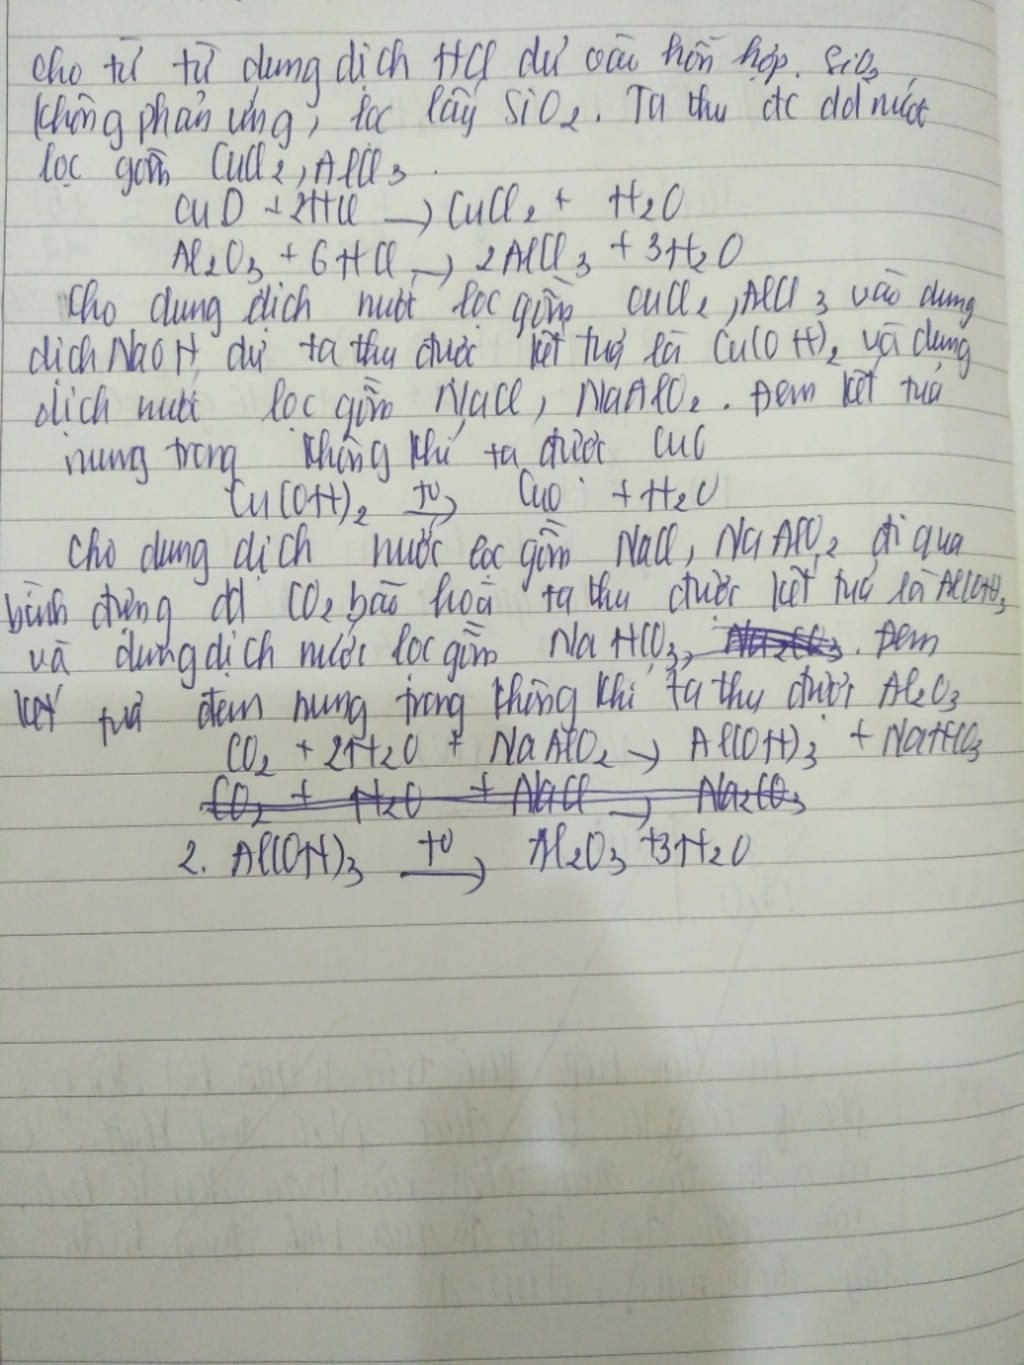 Cho từ từ dung dịch HCl dư vào hỗn hợp. SiO2
không phản ứng, lọc lấy SiO2. Ta thu đc dd nước
lọc gồm CuCl2, AlCl3.
CuO + 2HCl → CuCl2 + H2O
Al2O3 + 6HCl → 2AlCl3 + 3H2O
Cho dung dịch nước lọc gồm CuCl2, AlCl3 vào dung
dịch NaOH dư ta thu được kết tủa là Cu(OH)2 và dung
dịch nước lọc gồm NaCl, NaAlO2. Đem kết tủa
nung trong không khí ta được CuO
Cu(OH)2 t0→ CuO + H2O
Cho dung dịch nước lọc gồm NaCl, NaAlO2 đi qua
bình đựng dd CO2 bão hoà ta thu được kết tủa là Al(OH)3
và dung dịch nước lọc gồm NaHCO3, Na2CO3. Đem
kết tủa đem nung trong không khí ta thu được Al2O3
CO2 + 2H2O + NaAlO2 → Al(OH)3 + NaHCO3
CO2 + H2O + NaCl → Na2CO3
2. Al(OH)3 t0→ Al2O3 + 3H2O